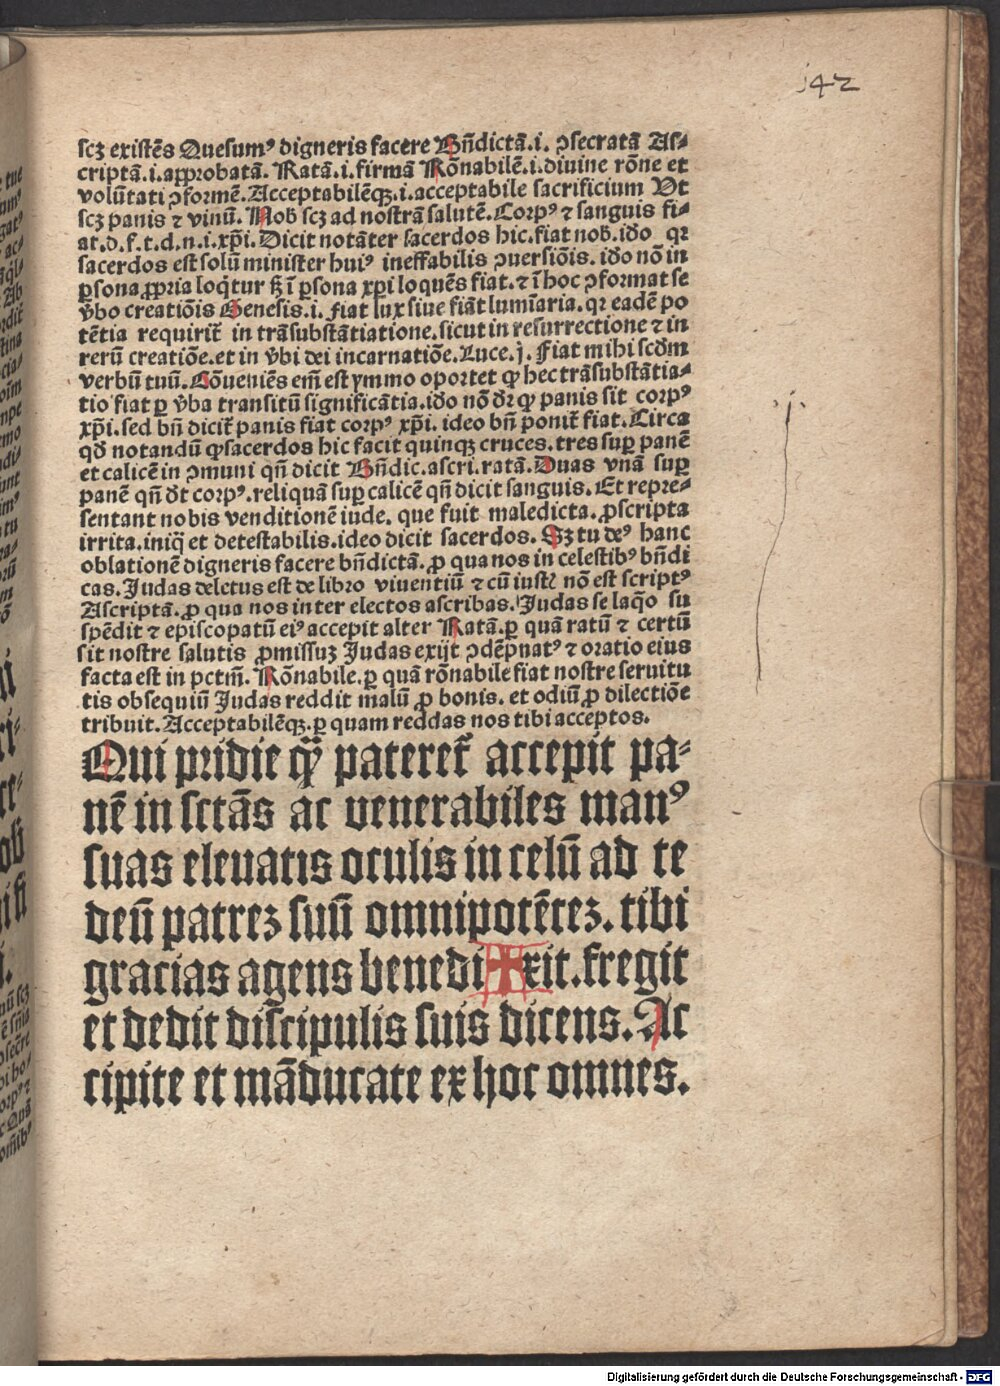 142
scʒ existēs Quesumꝰ digneris facere Bn̄dictā.i. ↄsecratā As⸗
criptā.i.aꝓrobatā. Ratā.i.firmā Rōnabilē.i.diuine rōne et
volūtati ↄformē.Acceptabilēqꝫ.i.acceptabile sacrificium Vt
scʒ panis ⁊ vinū. Nob̄ scʒ ad nostrā salutē.Corpꝰ ⁊ sanguis fi⸗
at.d.f.t.d.n.i.xp̄i.Dicit notāter sacerdos hic.fiat nob̄.iđo qꝛ
sacerdos est solū minister huiꝰ ineffabilis ↄuersiōis. iđo nō in
ꝑsona ꝓpria loqͥtur sʒ ī ꝑsona xp̄i loquēs fiat.⁊ ī hoc ↄformat se
v̄bo creatiōis Genesis.i. Fiat lux siue fiāt lumīaria.qꝛ eadē po
tētia requirit̄ in trāsubstātiatione.sicut in resurrectione ⁊ in
rerū creatiōe.et in v̄bi dei incarnatiōe.Luce.j. Fiat mihi scđm
verbū tuū. Cōueniēs em̄ est ymmo oportet ꝙ hec trāsubstātia⸗
tio fiat ꝑ v̄ba transitū significātia.iđo nō dr̄ ꝙ panis sit corpꝰ
xp̄i.sed bn̄ dicit̄ panis fiat corpꝰ xp̄i. ideo bn̄ ponit̄ fiat.Circa
qđ notandū ꝙ sacerdos hic facit quinqꝫ cruces.tres suꝑ panē
et calicē in ↄmuni qn̄ dicit Bn̄dic.ascri.ratā.Duas vnā suꝑ
panē qn̄ dt̄ corpꝰ.reliquā suꝑ calicē qn̄ dicit sanguis. Et repre⸗
sentant nobis venditionē iude. que fuit maledicta. ꝓscripta
irrita.iniq̄ et detestabilis.ideo dicit sacerdos. Sʒ tu deꝰ hanc
oblationē digneris facere bn̄dictā. ꝑ qua nos in celestibꝰ bn̄di
cas.Judas deletus est de libro viuentiū ⁊ cū iustꝭ nō est scriptꝰ
Ascriptā.ꝑ qua nos inter electos ascribas. Judas se laq̄o su
spēdit ⁊ episcopatū eiꝰ accepit alter Ratā.ꝑ quā ratū ⁊ certū
sit nostre salutis ꝓmissuʒ Judas exijt ↄdēpnatꝰ ⁊ oratio eius
facta est in pctm̄. Rōnabile.ꝑ quā rōnabile fiat nostre seruitu
tis obsequiū Judas reddit malū ꝓ bonis. et odiū ꝓ dilectiōe
tribuit.Acceptabilēqꝫ.ꝑ quam reddas nos tibi acceptos.
Qui pridie qͣꝫ pateret̄ accepit pa⸗
nē in sctās ac venerabiles manꝰ
suas eleuatis oculis in celū ad te
deū patreʒ suū omnipotēteʒ. tibi
gracias agens benedi✠xit.fregit
et dedit discipulis suis dicens. Ac
cipite et māducate ex hoc omnes.
Digitalisierung gefördert durch die Deutsche Forschungsgemeinschaft - DFG